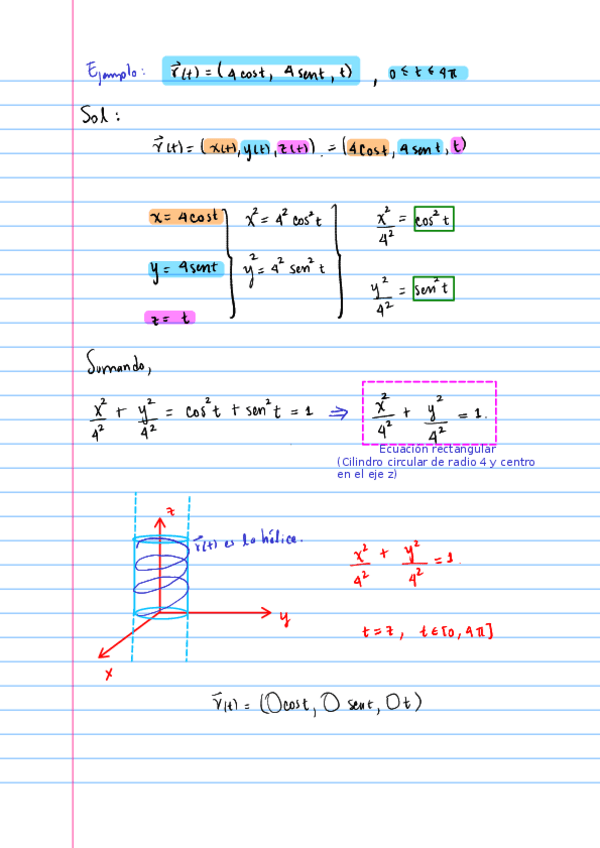 Ejemplo: r⃗(t) = (4 cost, 4 sent, t) , 0 ≤ t ≤ 4π
Sol:
r⃗(t) = (x(t), y(t), z(t)) = (4cost, 4 sent, t)
x = 4cost x² = 4² cos² t x²/4² = cos² t
y = 4sent y² = 4² sen² t y²/4² = sen² t
z = t
Sumando,
x²/4² + y²/4² = cos² t + sen² t = 1 ⇒ x²/4² + y²/4² = 1.
Ecuación rectangular
(Cilindro circular de radio 4 y centro
en el eje z)
z
r⃗(t) es la hélice.
x²/4² + y²/4² = 1.
y
t = z, t ∈ [0, 4π]
x
r⃗(t) = (O cost, O sent, O t)